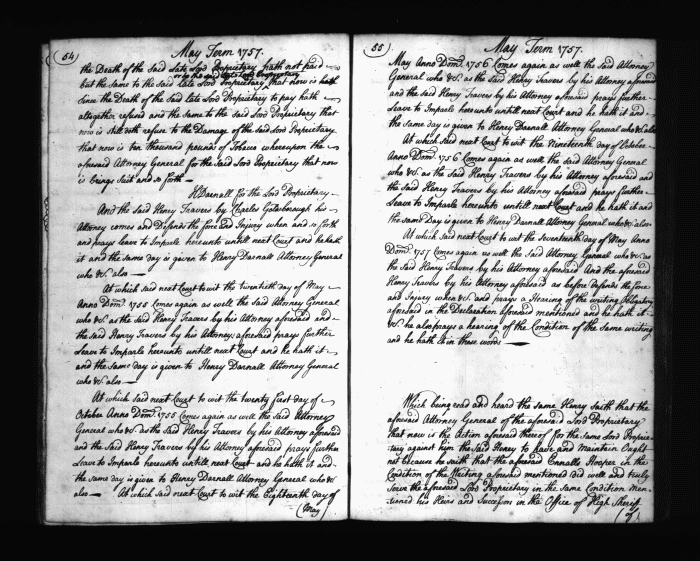 54)
May Term 1757.
the Death of the said late Lord Proprietary hath not paid
or to the said late Lord Proprietary
but the same to the said late Lord Proprietary that now is hath
Since the Death of the said late Lord Proprietary to pay hath
altogether refused and the same to the said Lord Proprietary that
now is still doth refuse to the Damage of the said Lord Proprietary
that now is ten thousand pounds of Tobacco whereupon the
aforesaid Attorney General for the said Lord Proprietary that now
is brings Suit and so forth
H Darnall for the Lord Proprietary
And the said Henry Travers by Charles Goldsborough his
Attorney comes and Defends the force and Injury when and so forth
and prays leave to Imparle hereunto untill next Court and he hath
it and the same day is given to Henry Darnall Attorney General
who &c. also
At which said next Court to wit the twentieth day of May
Anno Dom. 1755 Comes again as well the said Attorney General
who &c. as the said Henry Travers by his Attorney aforesaid and
the said Henry Travers by his Attorney aforesaid prays further
Leave to Imparle hereunto untill next Court and he hath it
and the same day is given to Henry Darnall Attorney General
who &c. also
At which said next Court to wit the twenty first day of
October Anno Dom. 1755 Comes again as well the said Attorney
General who &c. as the said Henry Travers by his Attorney aforesaid
and the said Henry Travers by his Attorney aforesaid prays further
Leave to Imparle hereunto untill next Court and he hath it and
the same day is given to Henry Darnall Attorney General who &c.
also At which said next Court to wit the Eighteenth day of
(May
55)
May Term 1757.
May Anno Dom. 1756 Comes again as well the said Attorney
General who &c. as the said Henry Travers by his Attorney aforesaid
and the said Henry Travers by his Attorney aforesaid prays further
Leave to Imparle hereunto untill next Court and he hath it and
the same day is given to Henry Darnall Attorney General who &c. also
At which said next Court to wit the Nineteenth day of October
Anno Dom. 1756 Comes again as well the said Attorney General
who &c. as the said Henry Travers by his Attorney aforesaid and
the said Henry Travers by his Attorney aforesaid prays further
Leave to Imparle hereunto untill next Court and he hath it and
the same Day is given to Henry Darnall Attorney General who &c. also
At which said next Court to wit the Seventeenth day of May Anno
Dom. 1757 Comes again as well the said Attorney General who &c. as
the said Henry Travers by his Attorney aforesaid And the aforesaid
Henry Travers by his Attorney aforesaid as before Defends the force
and Injury when &c. and prays a Hearing of the writing Obligatory
aforesaid in the Declaration aforesaid mentioned and he hath it
&c. he also prays a hearing of the Condition of the same writing
and he hath it in these words
Which being read and heard the same Henry saith that the
aforesaid Attorney General of the aforesaid Lord Proprietary
that now is the Action aforesaid thereof for the same Lord Proprie-
tary against him the said Henry to have and maintain Ought
not because he saith that the aforesaid Ennalls Hooper in the
Condition of the Writing aforesaid mentioned did well and truly
serve the aforesaid Lord Proprietary in the same Condition men-
tioned his Heirs and Successors in the Office of High Sheriff
(of